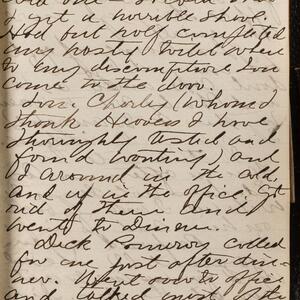 I got a horrible shave.
Had but half completed
my hasty toilet when
to my discomfiture Lou
came to the door.
Lou, Charley (whom
thank Heavens I have
thoroughly tested and
found wanting) and
I around in the
and up in the office. Got
rid of them and
went to dinner.
Dick Pomeroy called
for me just after din-
ner. Went over to office
and talked most of the